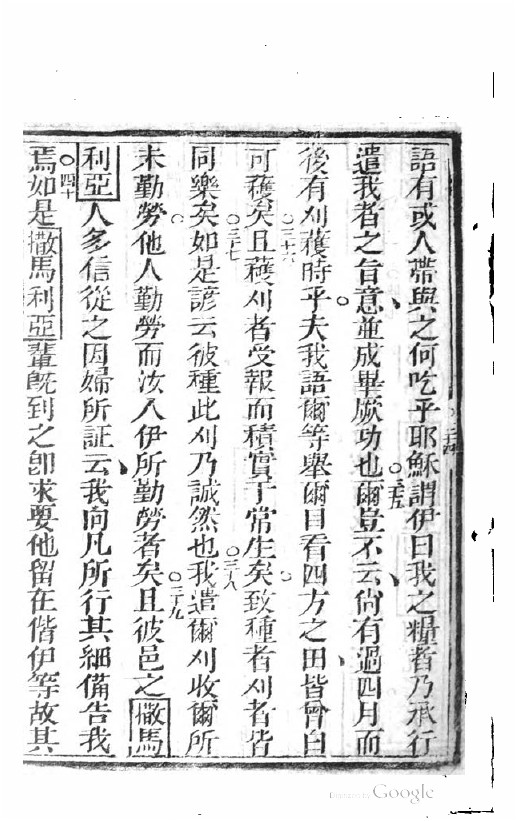 語有或人帶與之何吃乎耶穌謂伊曰我之糧者乃承行
遣我者之旨意並成畢厥功也爾豈不云尚有過四月而
後有刈穫時乎夫我語爾等舉爾目看四方之田皆曾白
可穫矣且穫刈者受報而積實于常生矣致種者刈者皆
同樂矣如是諺云彼種此刈乃誠然也我遣爾刈收爾所
未勤勞他人勤勞而汝入伊所勤勞者矣且彼邑之撒馬
利亞人多信從之因婦所証云我向凡所行其細備告我
焉如是撒馬利亞輩既到之卽求要他留在偕伊等故其
三四
三五
三十六
三十七
三十八
三十九
四十
Digitized by Google